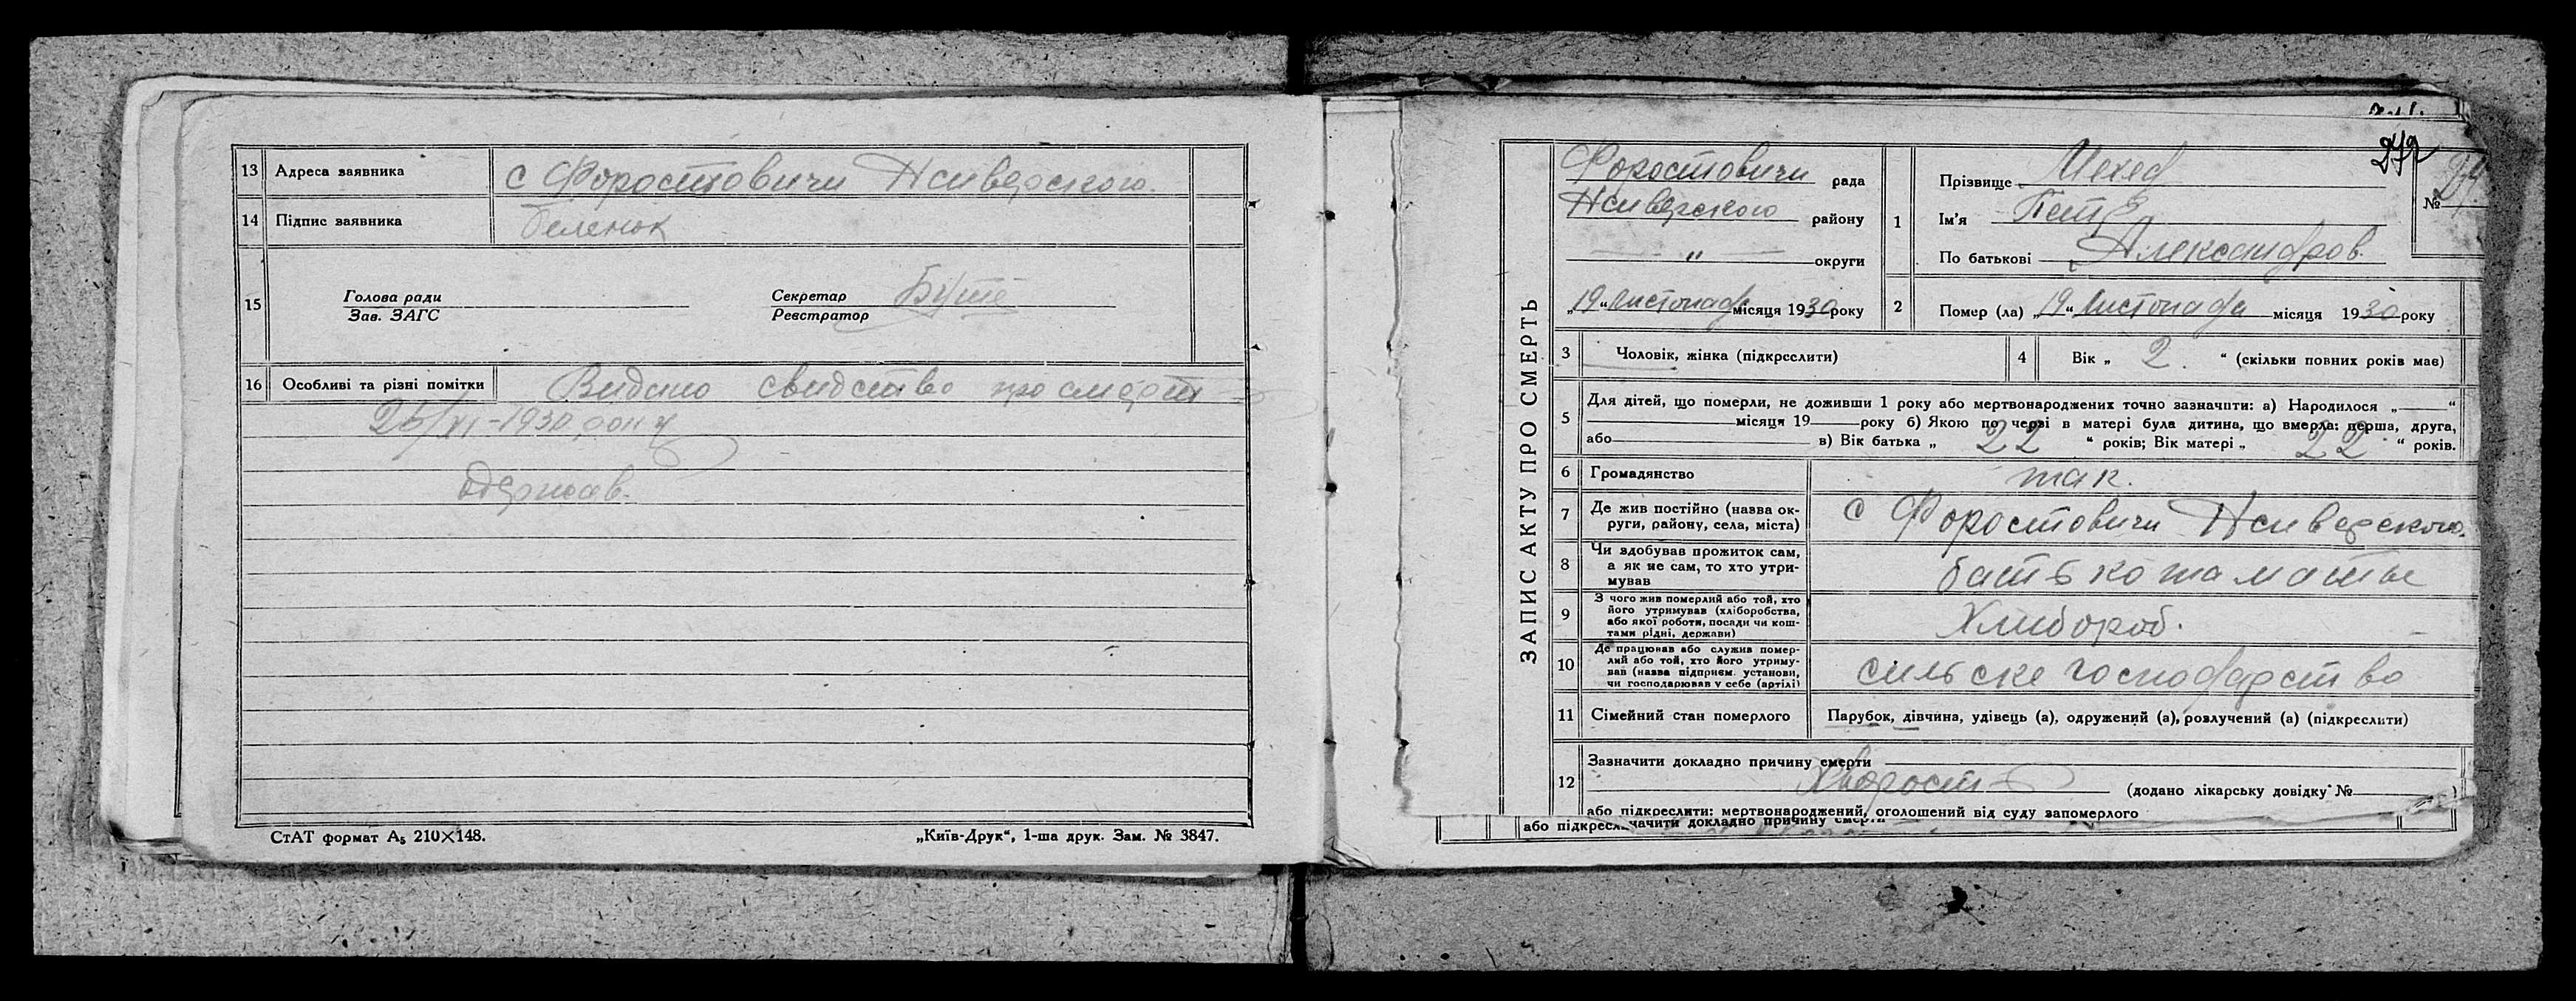 13 Адреса заявника с Форостовичи Нсиверского.
14 Підпис заявника Беленок
15 Голова ради
Зав. ЗАГС
Секретар
Реєстратор
16 Особливі та різні помітки Видано свидство про смерт
25/XI-1930 року
одержав.
СтАТ формат А₅ 210×148.
„Київ-Друк“, 1-ша друк. Зам. № 3847.
272
ЗАПИС АКТУ ПРО СМЕРТЬ
Форостовичи рада
Нсиверского району
— " — округи
„19“ Листопада місяця 1930 року
1 Прізвище Мехед
Ім'я Петр
По батькові Александров.
№
2 Помер (ла) „19“ Листопада місяця 1930 року
3 Чоловік, жінка (підкреслити)
4 Вік „ 2 “ (скільки повних років має)
5 Для дітей, що померли, не доживши 1 року або мертвонароджених точно зазначити: а) Народилося „ “
місяця 19 року б) Якою по черзі в матері була дитина, що вмерла: перша, друга,
або в) Вік батька „ 22 “ років; Вік матері „ 22 “ років.
6 Громадянство так.
7 Де жив постійно (назва ок-
руги, району, села, міста) с Форостовичи Нсиверского.
8 Чи здобував прожиток сам,
а як не сам, то хто утри-
мував батько та мать
9 З чого жив померлий або той, хто
його утримував (хліборобства,
або якої роботи, посади чи кош-
тами рідні, держави) Хлибороб.
10 Де працював або служив помер-
лий або той, хто його утриму-
вав (назва підприєм. установи,
чи господарював у себе (артілі) сильске господарство
11 Сімейний стан померлого Парубок, дівчина, удівець (а), одружений (а), розлучений (а) (підкреслити)
12 Зазначити докладно причину смерти
(додано лікарську довідку №
або підкреслити: мертвонароджений, оголошений від суду запомерлого
або підкресл
значити докладно причину смерти